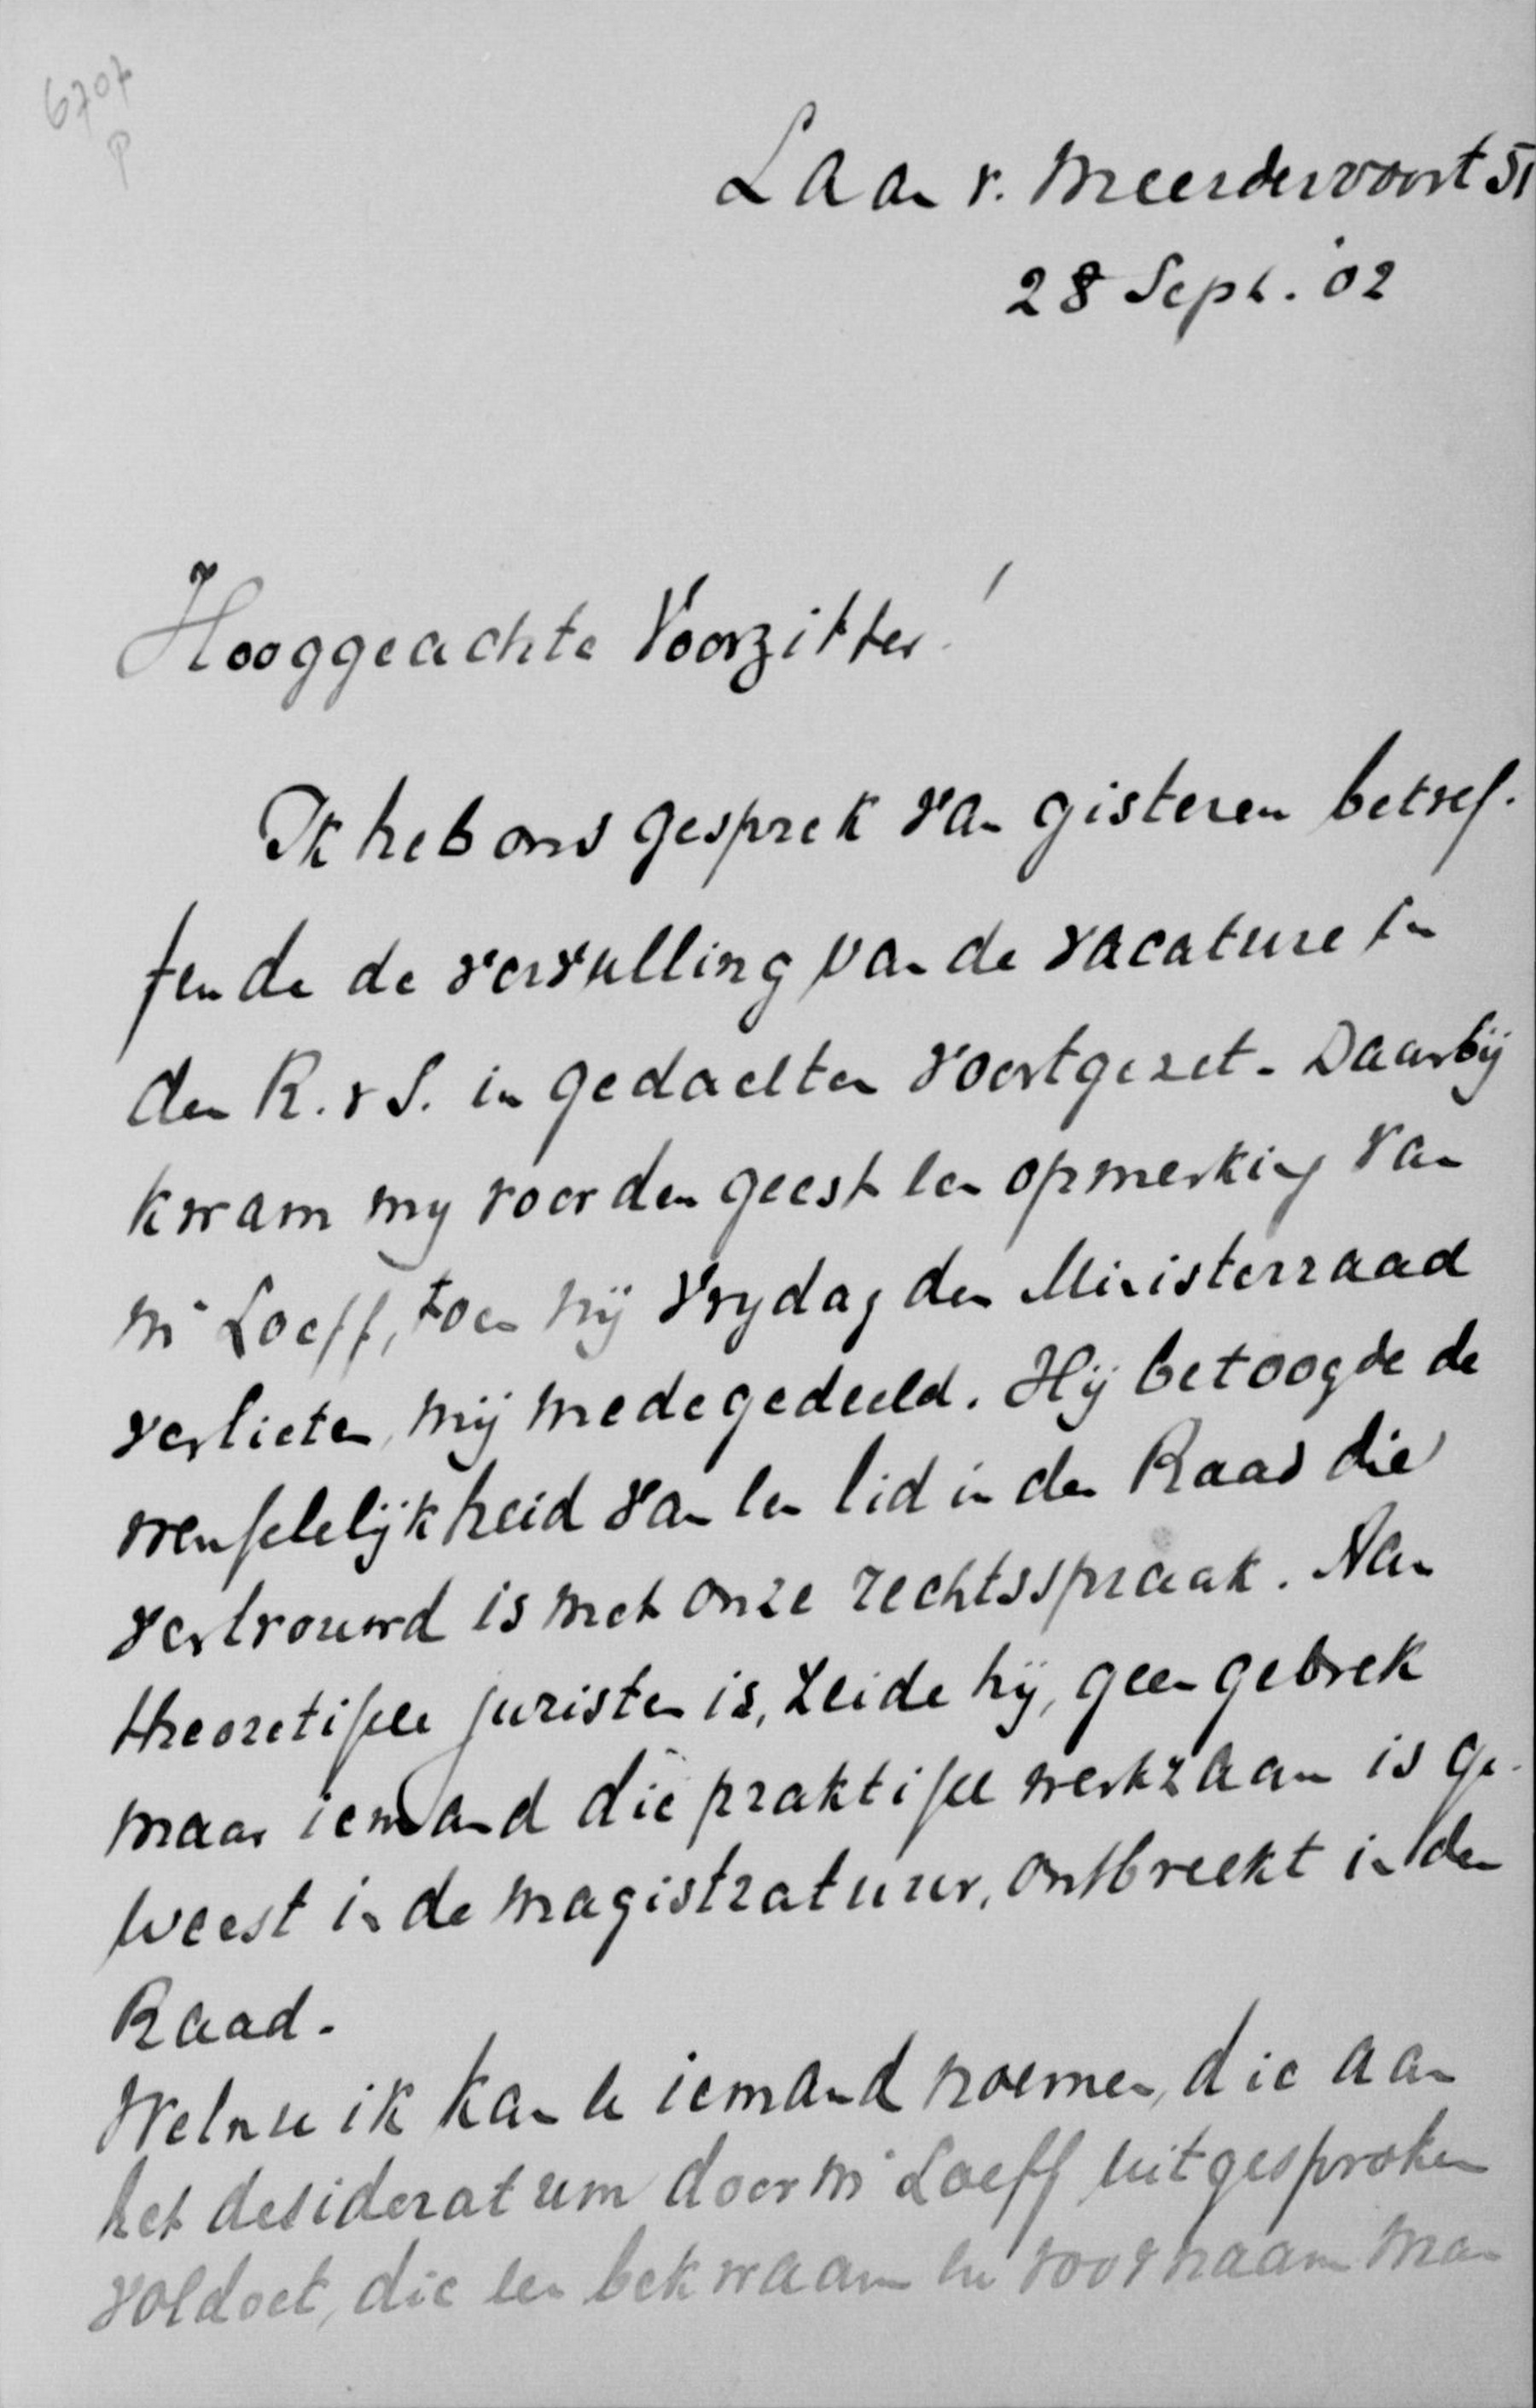 6707
P
Laan v. Meerdervoort 51
28 Sept. '02
Hooggeachte Voorzitter!
Ik heb ons gesprek van gisteren betref-
fende de vervulling van de vacature in
den R. v S. in gedachten voortgezet. Daarbij
kwam mij voor den geest een opmerking van
Mr Loeff, toen hij Vrydag den Ministerraad
verlieten, mij medegedeeld. Hij betoogde de
wenschelijkheid van een lid in den Raad die
vertrouwd is met onze rechtsspraak. Aan
theoretische juristen is, zeide hij, geen gebrek
maar iemand die praktisch werkzaam is ge-
weest in de magistratuur, ontbreekt in den
Raad.
Welnu ik kan U iemand noemen, die aan
het desideratum door Mr Loeff uitgesproken
voldoet, die een bekwaam en voornaam man